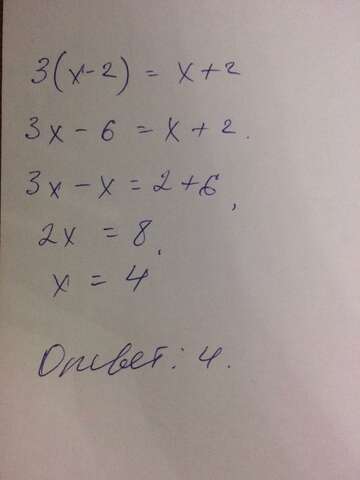 3(x-2) = x+2
3x - 6 = x + 2.
3x - x = 2 + 6,
2x = 8,
x = 4
Ответ: 4.